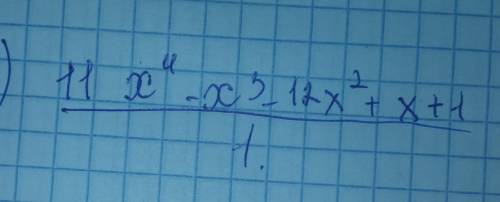 ) 11 x⁴ - x³ - 12x² + x + 1
1.